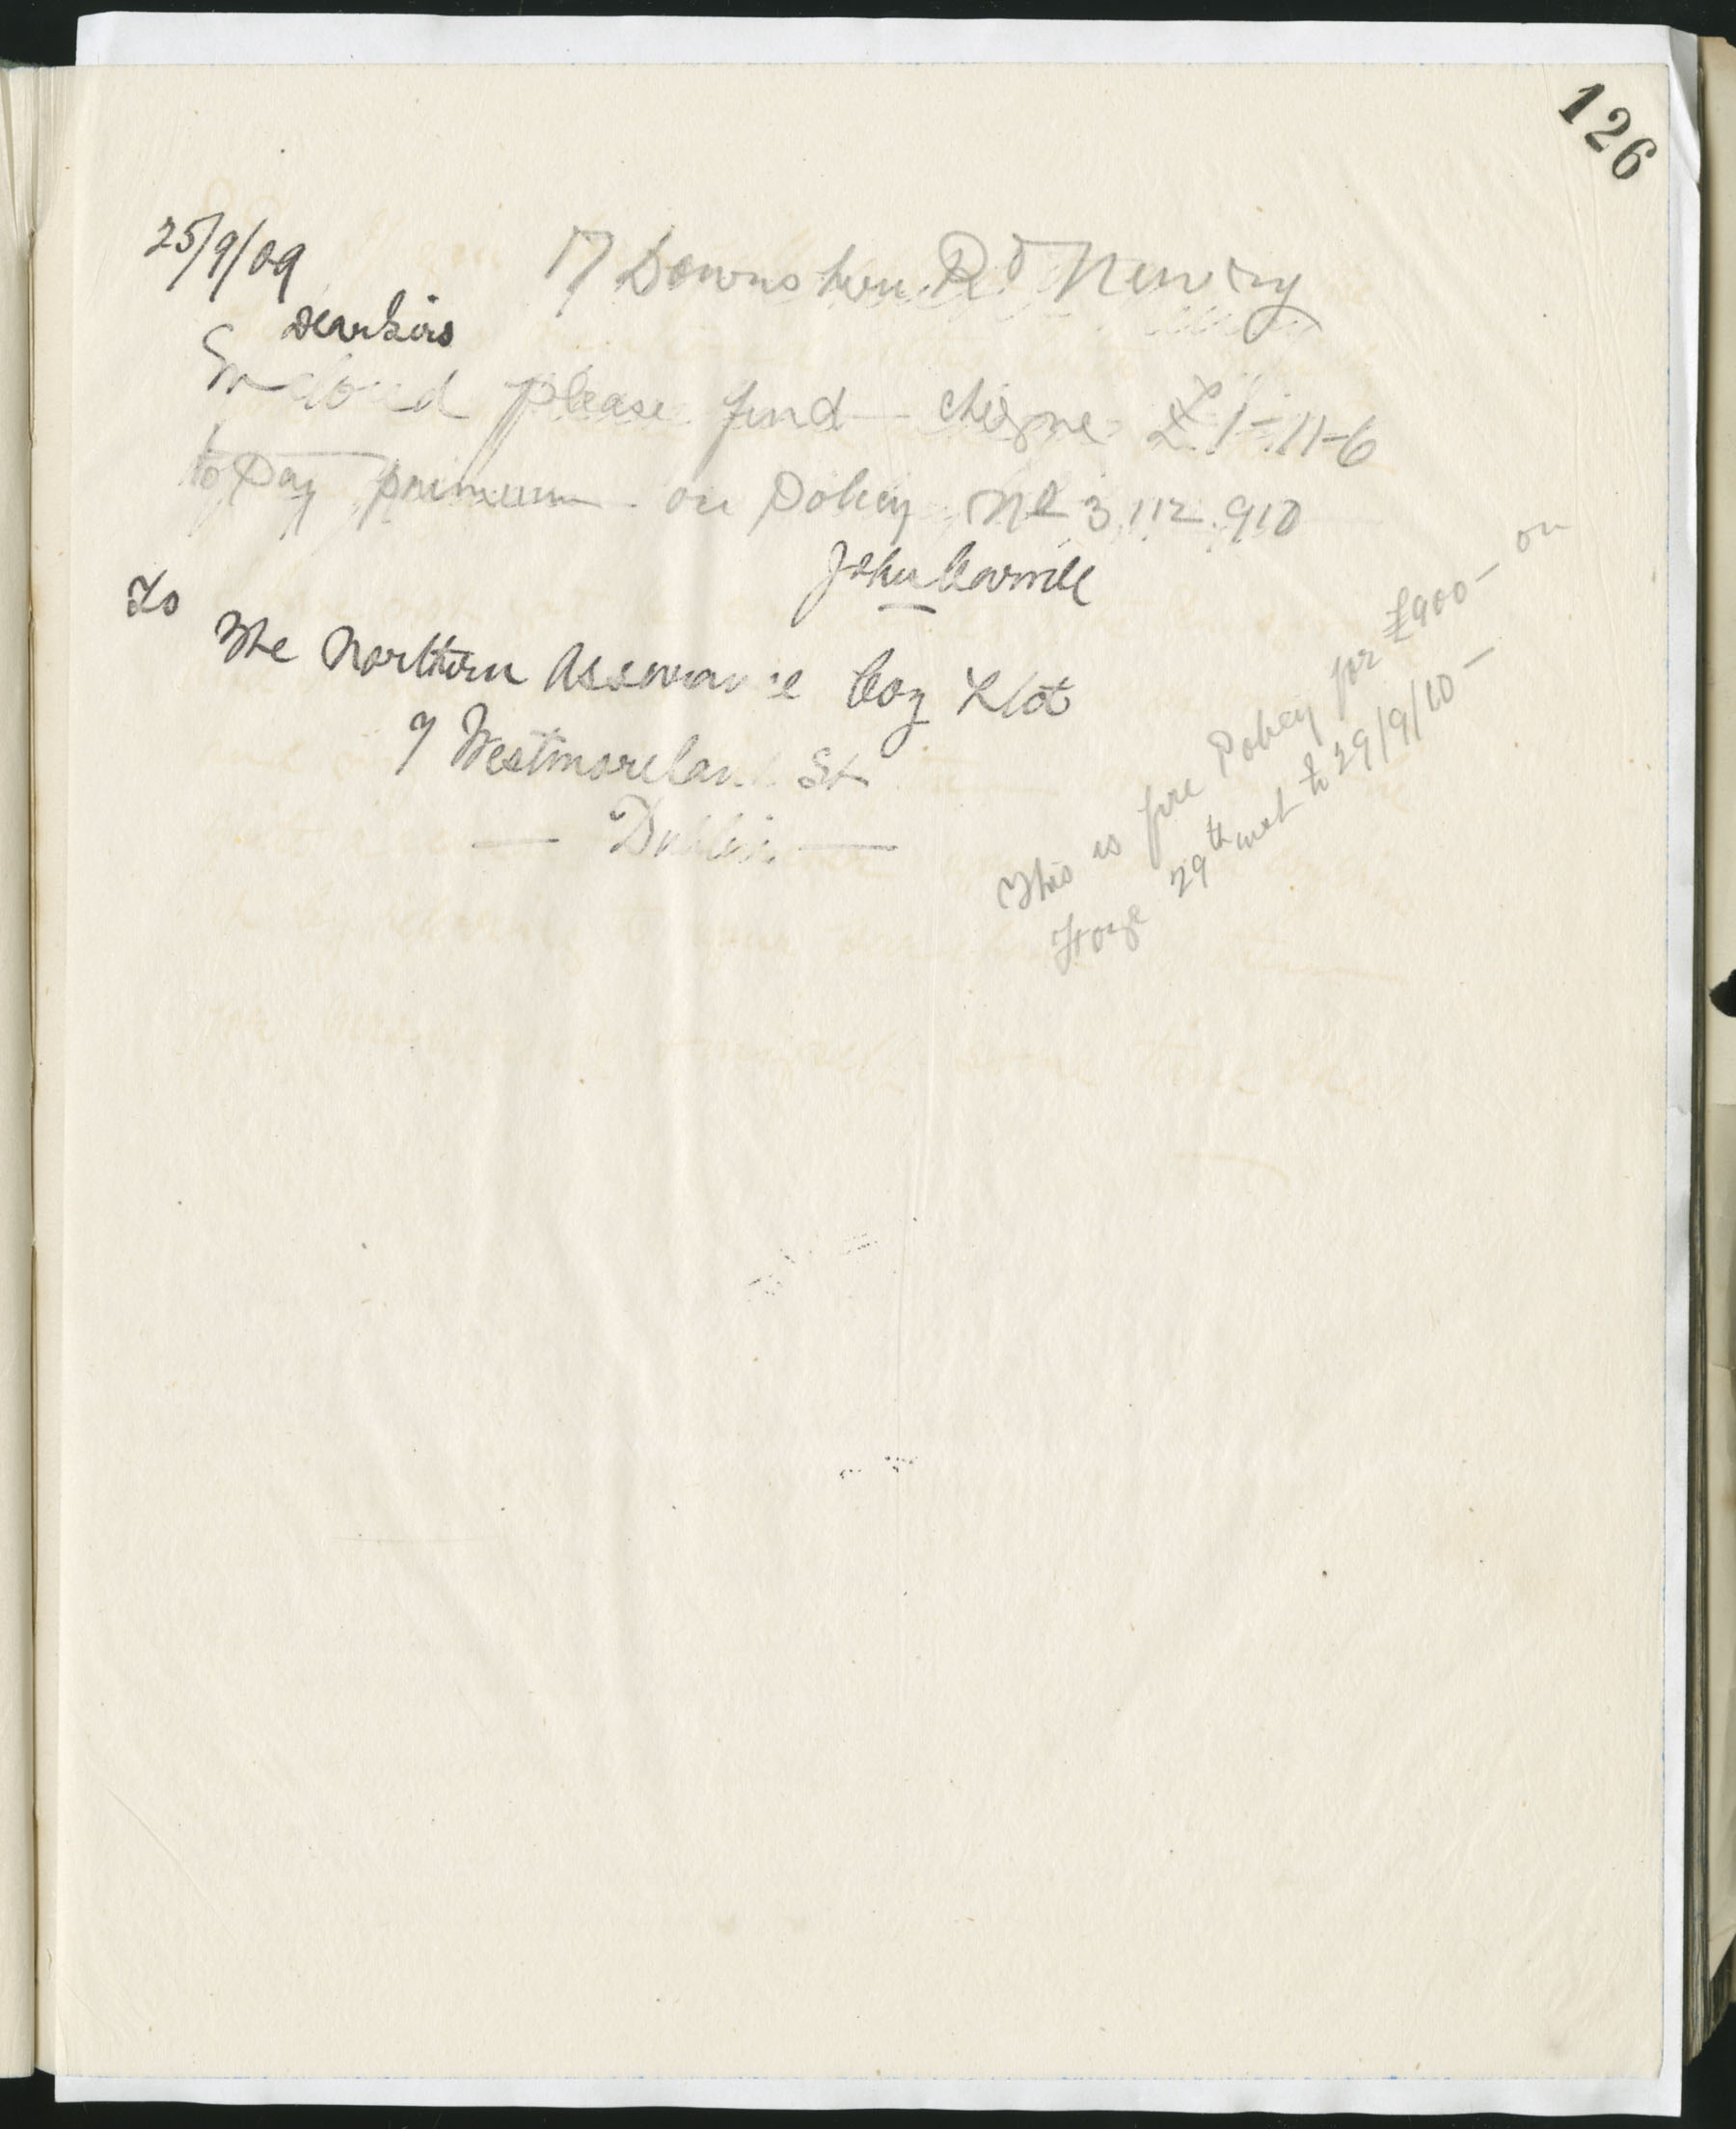 126
25/9/09
17 Downshire Rd Newry
Dear Sirs
Enclosed please find cheque £1-11-6
to Pay premium on Policy No 3.112.910
John Carvill
To
The Northern Assurance Coy Ltd
9 Westmoreland St
— Dublin —
This is fire Policy for £900 — on
29th inst to 29/9/10 —